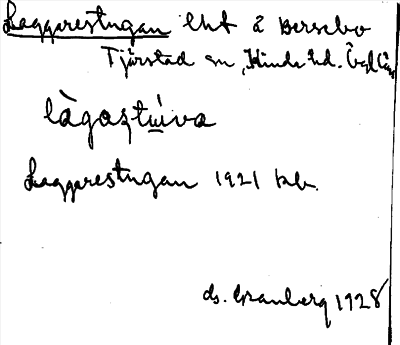 Laggarestugan lht å Bersebo
Tjärstad sn, Kinda hd. Ögl. län
làgastɯ́va
Laggarestugan 1921 kb.
ds. Granberg 1928